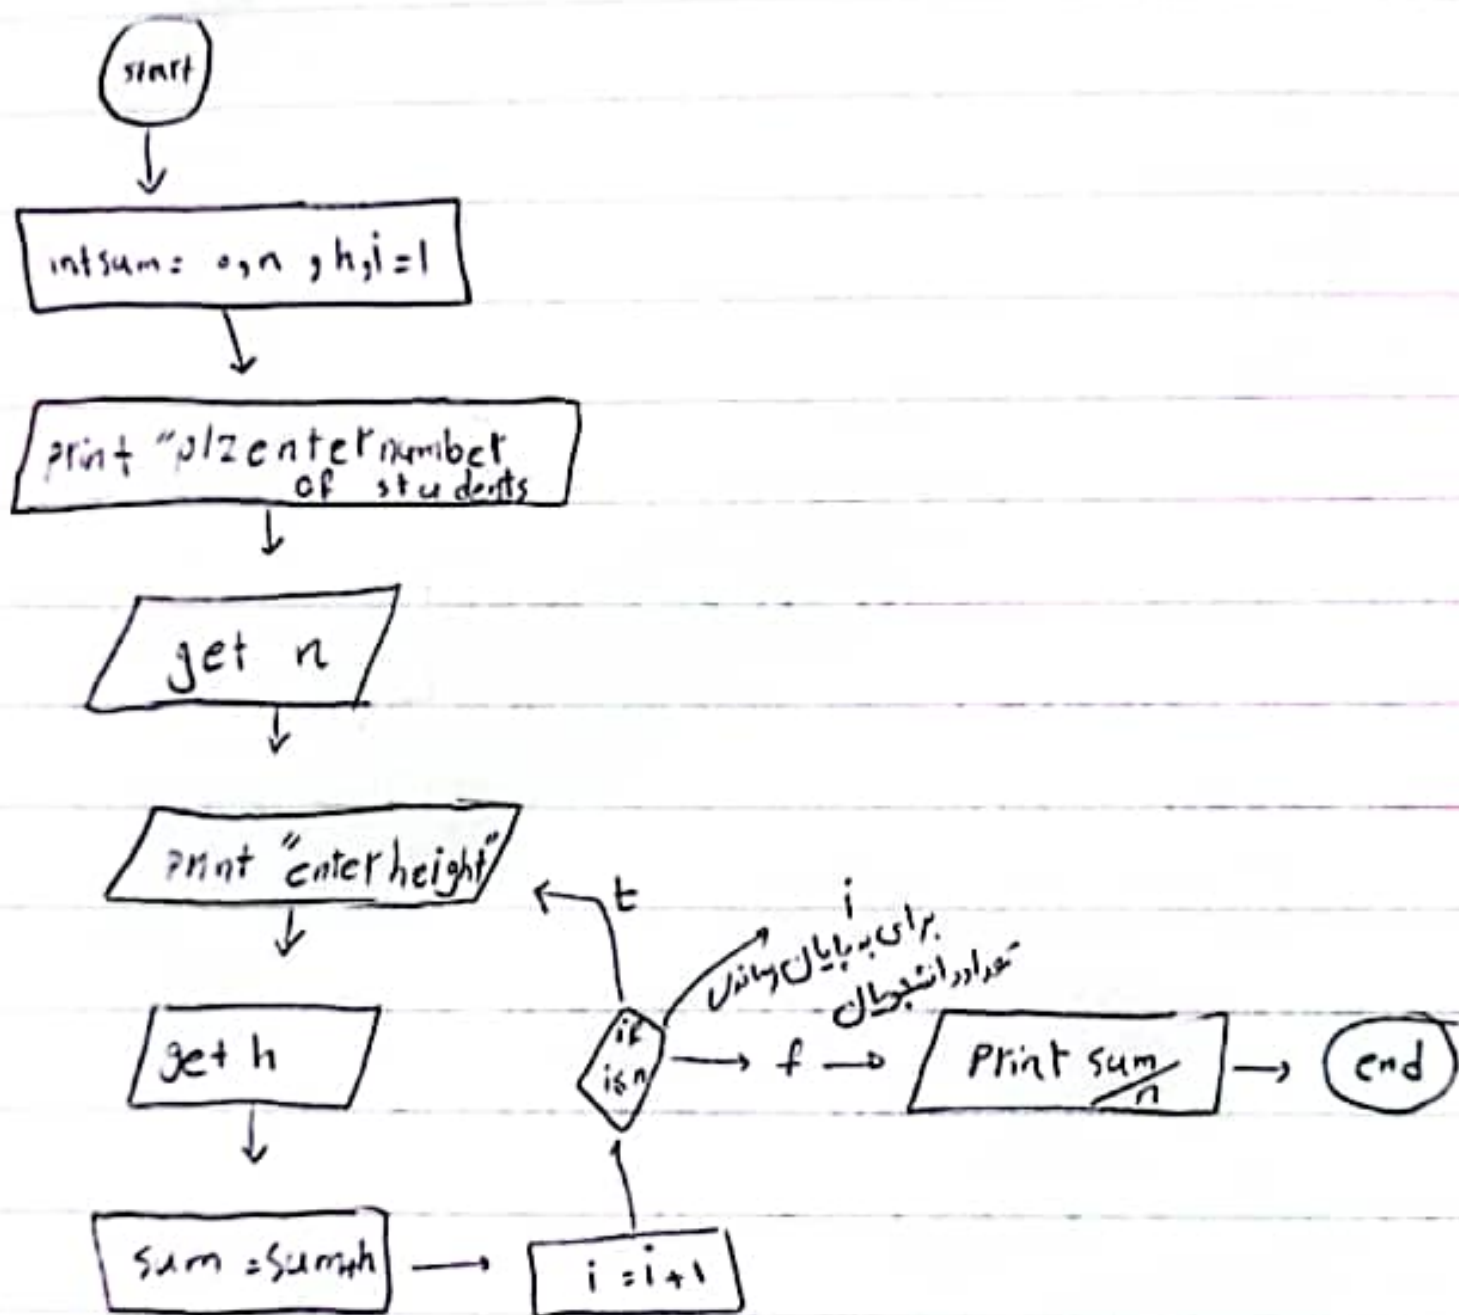 start
int sum = 0, n , h, i = 1
print "plz enter number
of students
get n
print "enter height"
get h
sum = sum+h
i = i + 1
if
i≤n
t
i
برای به پایان رساندن
تعداد دانشجویان
f
print sum/n
end